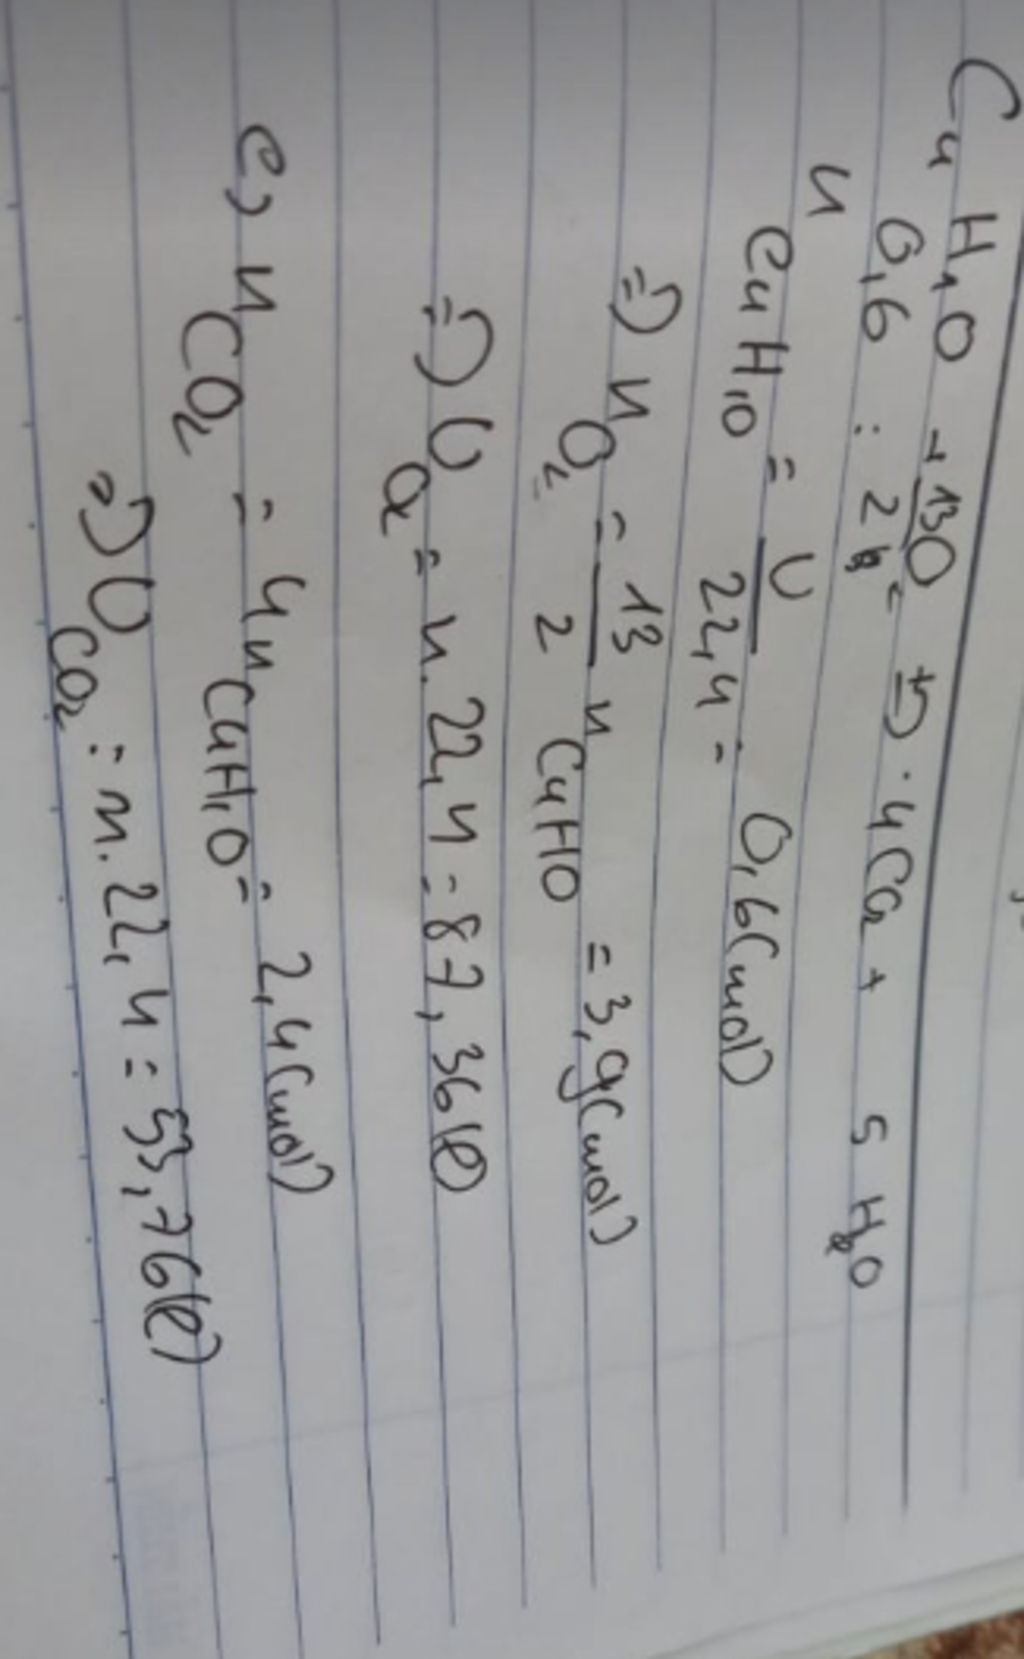 C4H10 + 13/2 O2 => 4CO2 + 5 H2O
0,6 :
n C4H10 = V/22,4 = 0,6(mol)
=) n O2 = 13/2 n C4H10 = 3,9(mol)
=) V O2 = n.22,4 = 87,36(l)
c) n CO2 = 4n C4H10 = 2,4(mol)
=) V CO2 = n.22,4 = 53,76(l)